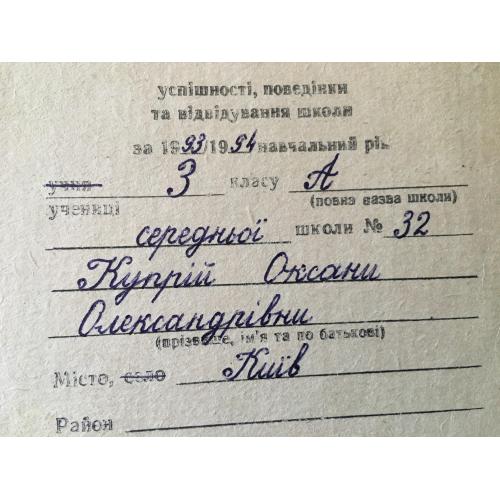 успішності, поведінки
та відвідування школи
за 1993/1994 навчальний рік
учня 3 класу А
учениці (повна назва школи)
середньої школи № 32
Купрій Оксани
Олександрівни
(прізвище, ім'я та по батькові)
Місто, село Київ
Район